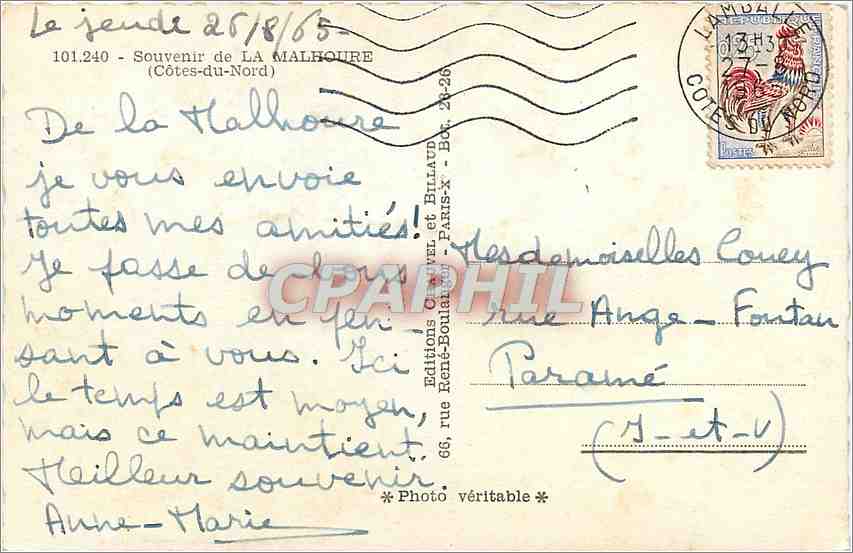 Le jeudi 26/8/65-
101.240 - Souvenir de LA MALHOURE
(Côtes-du-Nord)
De la Malhoure
je vous envoie
toutes mes amitiés!
Je passe de bons
moments en pen-
sant à vous. Ici
le temps est moyen,
mais ce maintient.
Meilleur souvenir.
Anne-Marie
Editions CHAUVEL et BILLAUD
66, rue René-Boulanger - PARIS-X - Bot. 28-26
✻ Photo véritable ✻
LAMBALLE
13H
27-8
COTES DU NORD
REPUBLIQUE
FRANÇAISE
Postes
Mesdemoiselles Couey
rue Ange-Fontan
Paramé
(I-et-V)
CPARPHIL